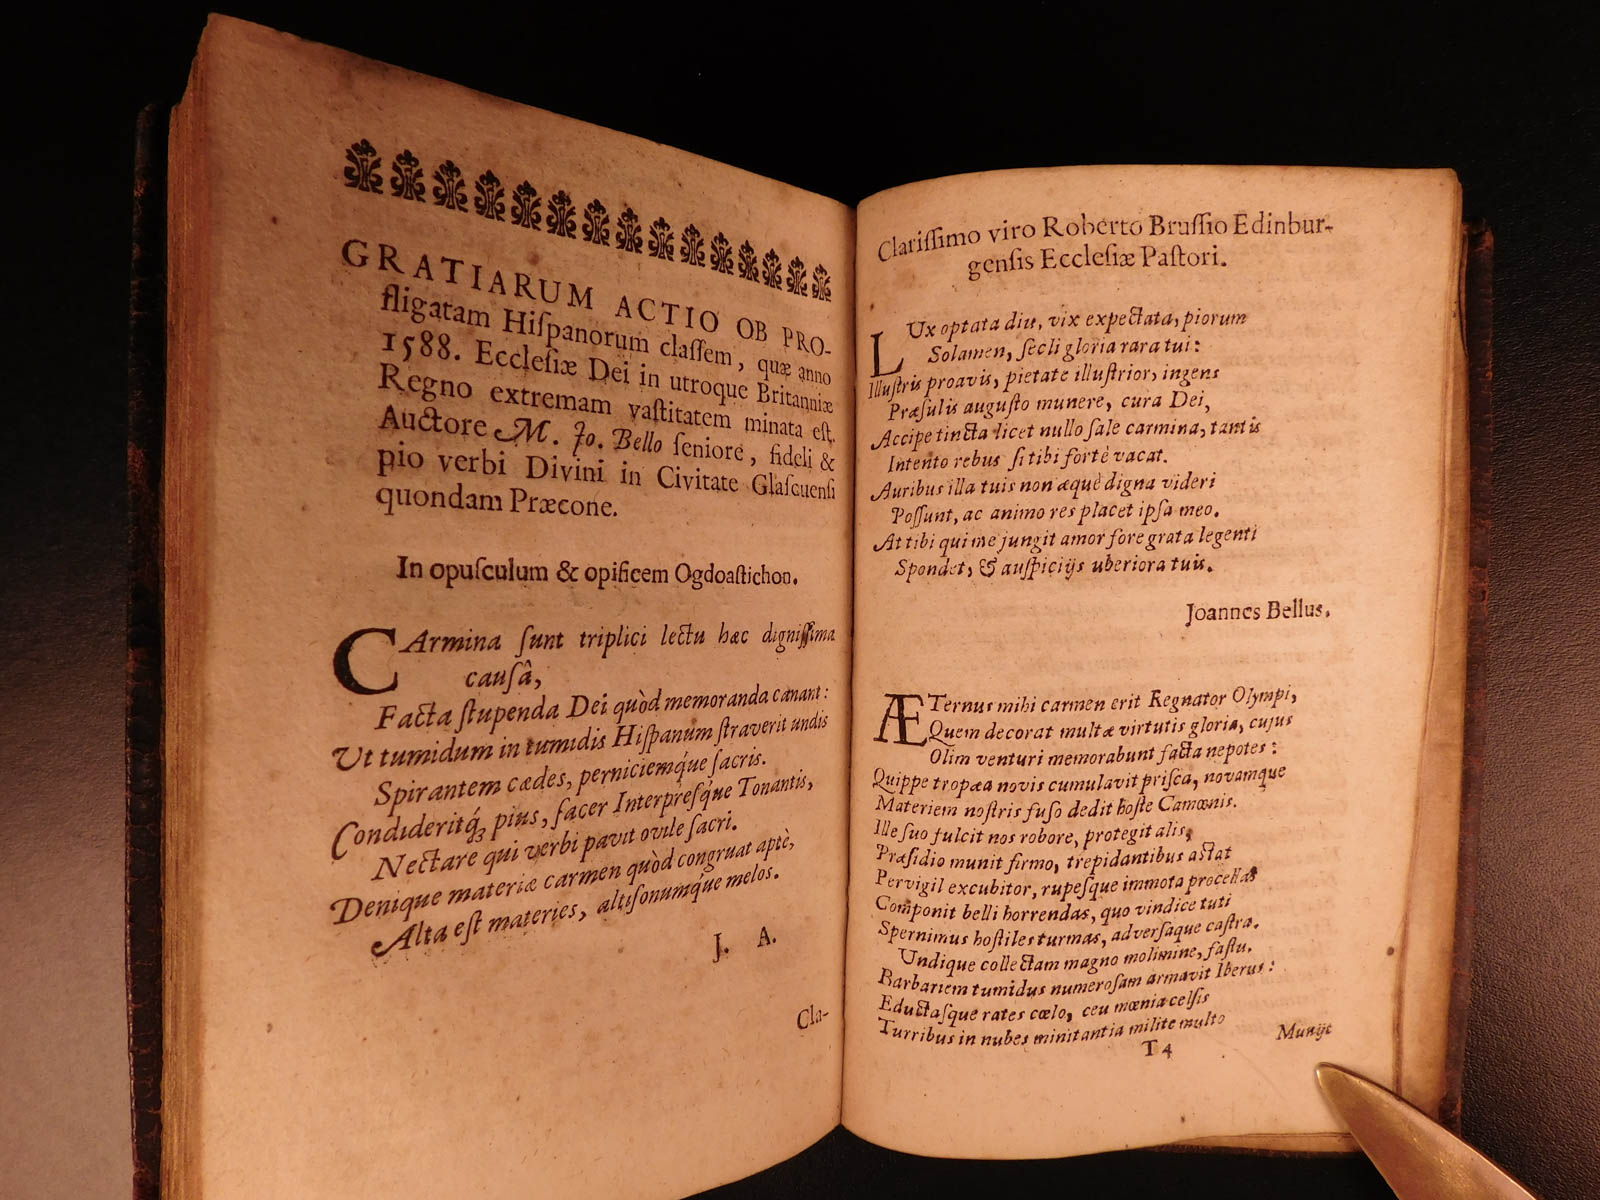 GRATIARUM ACTIO OB PRO-
fligatam Hiſpanorum claſſem, quæ anno
1588. Eccleſiæ Dei in utroque Britanniæ
Regno extremam vaſtitatem minata eſt.
Auctore M. Jo. Bello ſeniore, fideli &
pio verbi Divini in Civitate Glaſcuenſi
quondam Præcone.
In opuſculum & opificem Ogdoaſtichon.
CArmina ſunt triplici lectu hæc digniſſima
cauſâ,
Facta ſtupenda Dei quòd memoranda canant:
Ut tumidum in tumidis Hiſpanum ſtraverit undis
Spirantem cædes, perniciemq́ue ſacris.
Condideritq́; pius, ſacer Interpreſq́ue Tonantis,
Nectare qui verbi pavit ovile ſacri.
Denique materiæ carmen quòd congruat aptè,
Alta eſt materies, altiſonumq́ue melos.
J. A.
Cla-
Clariſſimo viro Roberto Bruſſio Edinbur-
genſis Eccleſiæ Paſtori.
LUx optata diu, vix expectata, piorum
Solamen, ſecli gloria rara tui:
Illuſtris proavis, pietate illuſtrior, ingens
Præſulis auguſto munere, cura Dei,
Accipe tincta licet nullo ſale carmina, tantis
Intento rebus ſi tibi fortè vacat.
Auribus illa tuis non æquè digna videri
Poſſunt, ac animo res placet ipſa meo.
At tibi qui me jungit amor fore grata legenti
Spondet, & auſpicijs uberiora tuis.
Joannes Bellus.
ÆTernus mihi carmen erit Regnator Olympi,
Quem decorat multæ virtutis gloria, cujus
Olim venturi memorabunt facta nepotes:
Quippe tropæa novis cumulavit priſca, novamque
Materiem noſtris fuſo dedit hoſte Camœnis.
Ille ſuo fulcit nos robore, protegit alis,
Præſidio munit firmo, trepidantibus aſtat
Pervigil excubitor, rupeſque immota procellas
Componit belli horrendas, quo vindice tuti
Spernimus hoſtiles turmas, adverſaque caſtra.
Undique collectam magno molimine, faſtu,
Barbariem tumidus numeroſam armavit Iberus:
Eductaſque rates cœlo, ceu mœnia celſis
Turribus in nubes minitantia milite multo
T 4
Munijt